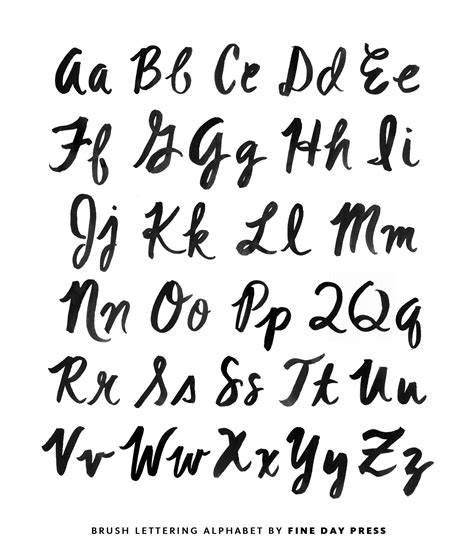 Aa Bb Cc Dd Ee
Ff GGg Hh Ii
Jj Kk Ll Mm
Nn Oo Pp QQq
Rr Ss Ss Tt Uu
Vv Ww Xx Yy Zz
BRUSH LETTERING ALPHABET BY FINE DAY PRESS